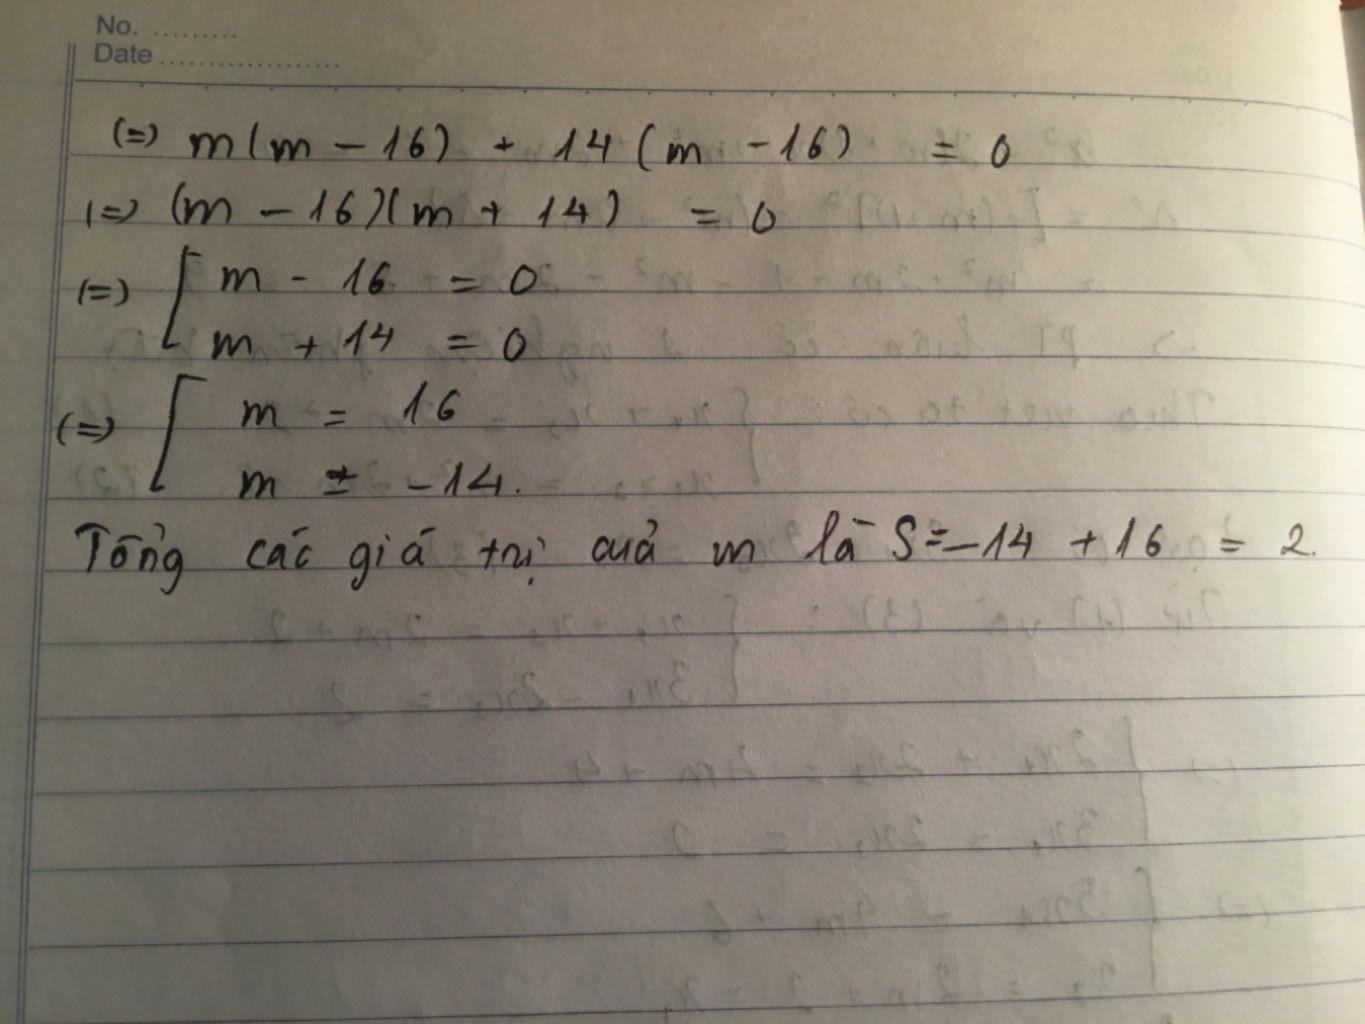 No. .........
Date ..................
(=) m(m - 16) + 14 (m - 16) = 0
(=) (m - 16)(m + 14) = 0
(=) [ m - 16 = 0
m + 14 = 0
(=) [ m = 16
m = -14.
Tổng các giá trị cuả m là S = -14 + 16 = 2.